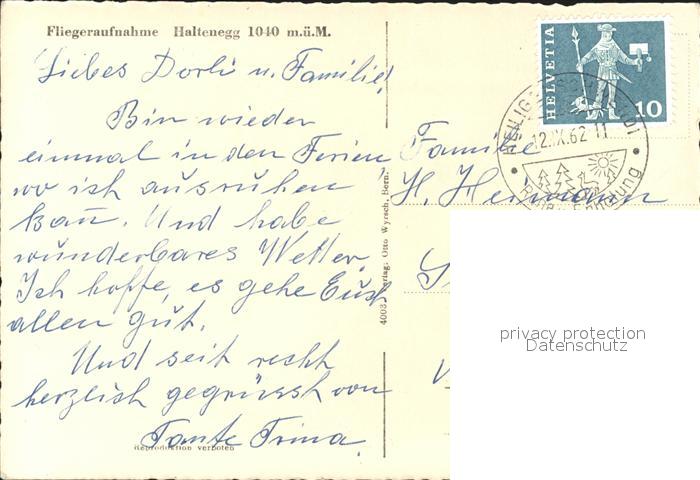 Fliegeraufnahme Haltenegg 1040 m.ü.M.
Liebes Dorli u. Familie!
Bin wieder
einmal in den Ferien,
wo ich ausruhen
kan̄. Und habe
wunderbares Wetter.
Ich hoffe, es gehe Euch
allen gut.
Und seit recht
herzlich gegrüsst von
Tante Trina.
Reproduktion verboten
Verlag: Otto Wyrsch, Bern.
HELVETIA
10
12.IX.62-11
Familie
H. Hermann
privacy protection
Datenschutz